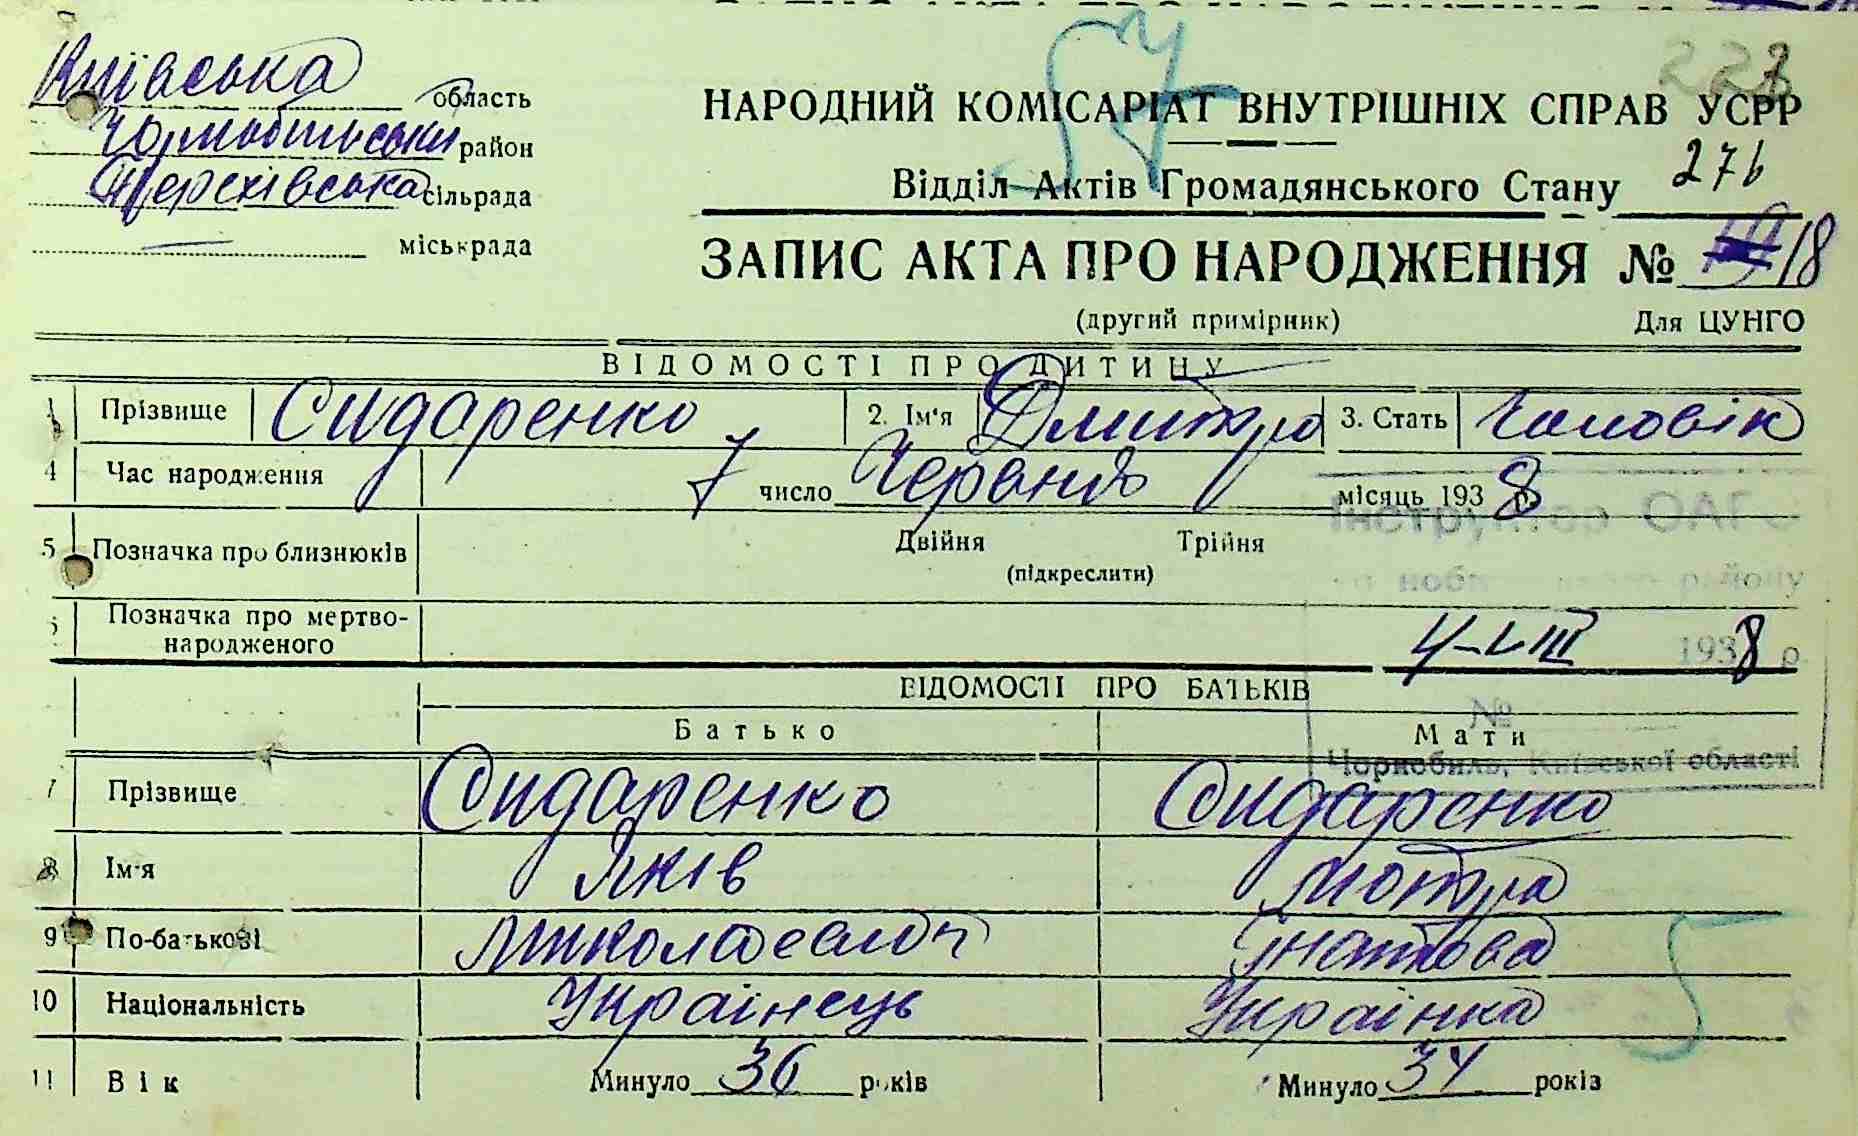 Київська область
Чорнобильський район
сільрада
міськрада
223
НАРОДНИЙ КОМІСАРІАТ ВНУТРІШНІХ СПРАВ УСРР
Відділ Актів Громадянського Стану 276
ЗАПИС АКТА ПРО НАРОДЖЕННЯ № 18
(другий примірник) Для ЦУНГО
ВІДОМОСТІ ПРО ДИТИНУ
1 Прізвище Сидаренко 2. Ім'я Дмитро 3. Стать Чоловік
4 Час народження 7 число Червня місяць 1938 р.
Інструктор ОАГС
5 Позначка про близнюків Двійня Трійня
(підкреслити)
району
6 Позначка про мертво-
народженого
4-VIII 1938 р.
ВІДОМОСТІ ПРО БАТЬКІВ
№
Батько Мати
Чорнобиль, Київської області
7 Прізвище Сидаренко Сидаренко
8 Ім'я Яків Мотря
9 По-батькові Миколаевич Гнатова
10 Національність Украінець Украінка
11 Вік Минуло 36 років Минуло 34 років